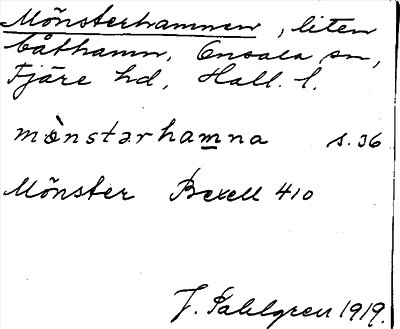 Mönsterhamnen, liten
båthamn, Onsala sn,
Fjäre hd, Hall. l.
mònstərhamna s. 36
Mönster Bexell 410
J. Sahlgren 1919.